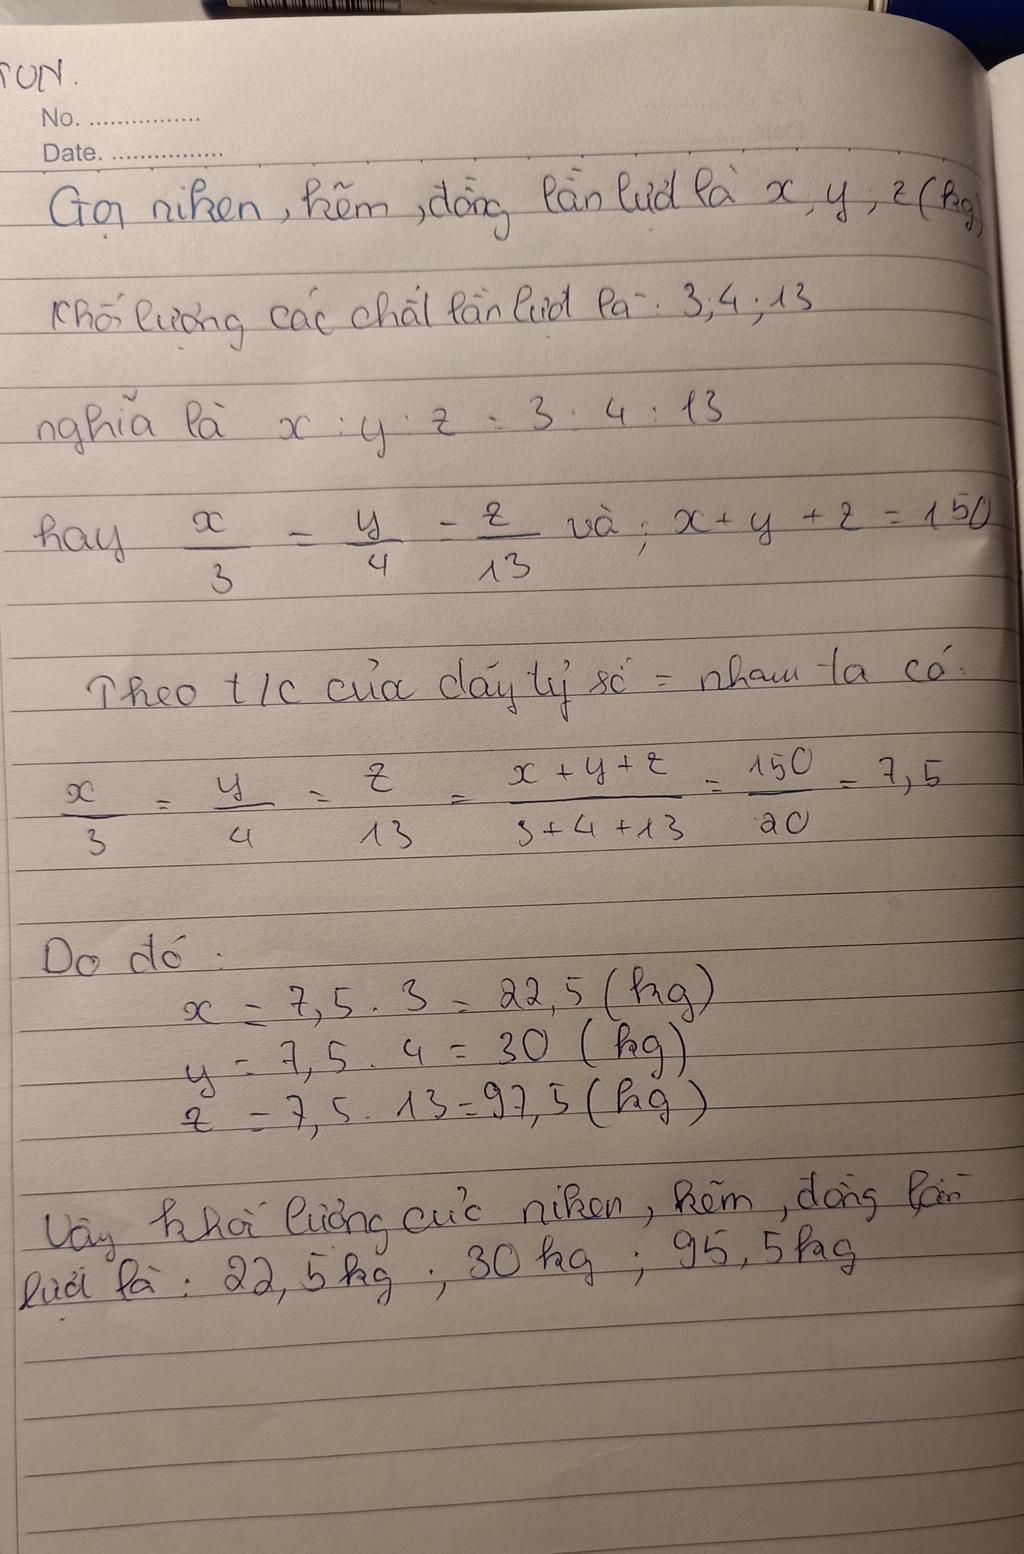 TON.
No. ................
Date. ................
Gọi niken, kẽm, đồng lần lượt là x, y, z (kg)
Khối lượng các chất lần lượt là: 3; 4; 13
nghĩa là x : y : z = 3 : 4 : 13
hay x/3 = y/4 = z/13 và; x + y + z = 150
Theo t/c của dãy tỷ số = nhau ta có:
x/3 = y/4 = z/13 = (x + y + z)/(3 + 4 + 13) = 150/20 = 7,5
Do đó:
x = 7,5 . 3 = 22,5 (kg)
y = 7,5 . 4 = 30 (kg)
z = 7,5 . 13 = 97,5 (kg)
Vậy khối lượng của niken, kẽm, đồng lần
lượt là: 22,5 kg; 30 kg; 95,5 kg